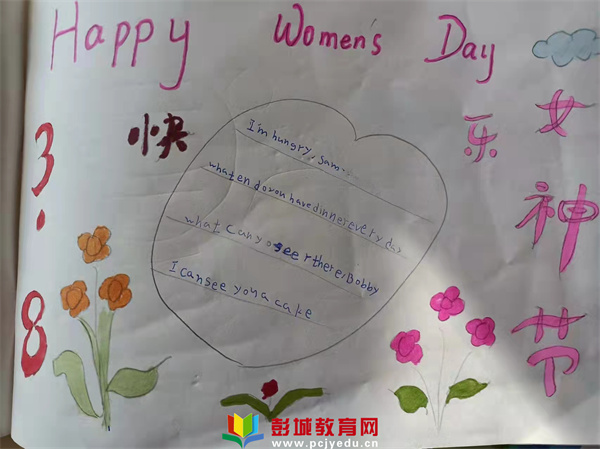 Happy Women's Day
3.8
快乐
女神节
I'm hungry, Sam.
whaten do you have dinner every day
what can yo see r there, Bobby
I can see you a cake
彭城教育网
www.pcjyedu.cn